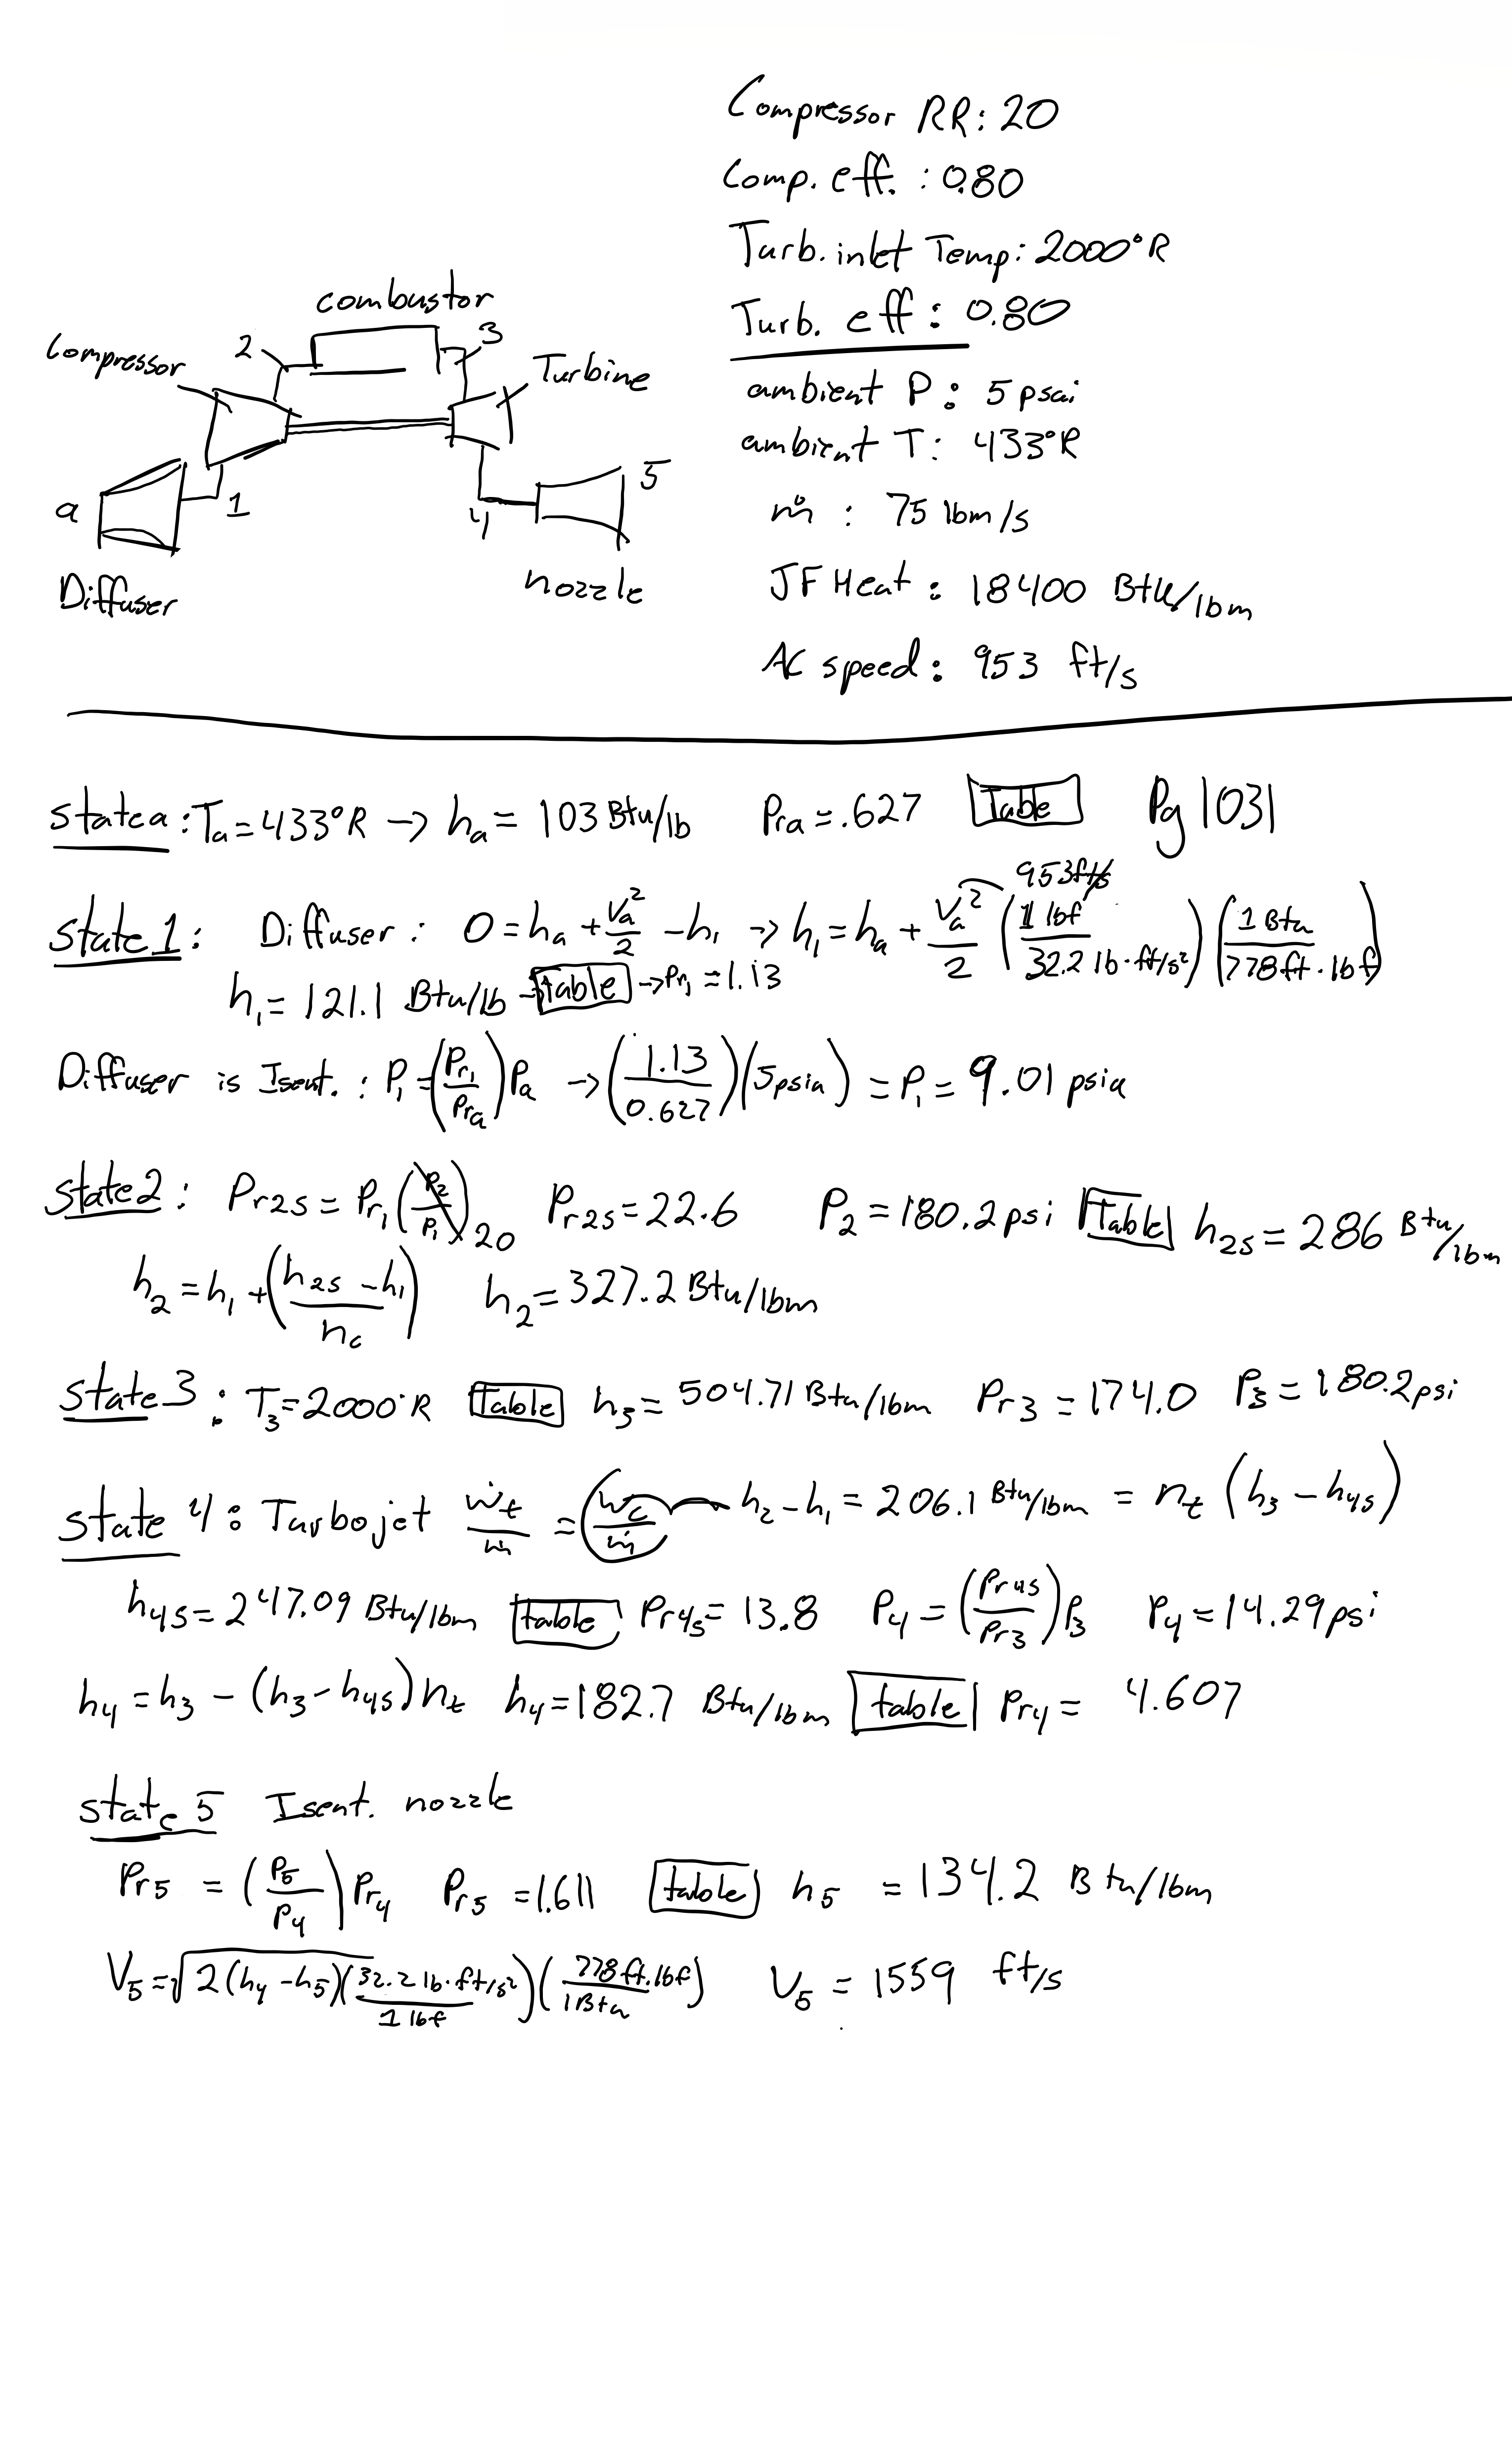 Compressor RR: 20
Comp. eff. : 0.80
Turb. inlet Temp: 2000°R
Turb. eff: 0.80
ambient P: 5 psai
ambient T: 433°R
ṁ : 75 lbm/s
JF Heat: 18400 Btu/lbm
AC speed: 953 ft/s
combustor
Compressor 2 3 Turbine
a 1 4 5
Diffuser nozzle
state a: Ta = 433°R → ha = 103 Btu/lb Pra = .627 Table Pg 1031
953 ft/s
state 1: Diffuser: 0 = ha + Va²/2 - h1 → h1 = ha + Va²/2 (1 lbf / 32.2 lb·ft/s²) (1 Btu / 778 ft·lbf)
h1 = 121.1 Btu/lb → table → Pr1 = 1.13
Diffuser is Isent. : P1 = (Pr1/Pra) Pa → (1.13/0.627)(5psia) = P1 = 9.01 psia
state 2: Pr2s = Pr1 (P2/P1) 20 Pr2s = 22.6 P2 = 180.2 psi Table h2s = 286 Btu/lbm
h2 = h1 + (h2s - h1 / nc) h2 = 327.2 Btu/lbm
state 3: T3 = 2000°R Table h3 = 504.71 Btu/lbm Pr3 = 174.0 P3 = 180.2 psi
state 4: Turbojet ẇt/ṁ = ẇc/ṁ h2 - h1 = 206.1 Btu/lbm = nt (h3 - h4s)
h4s = 247.09 Btu/lbm table Pr4s = 13.8 P4 = (Pr4s/Pr3) P3 P4 = 14.29 psi
h4 = h3 - (h3 - h4s) nt h4 = 182.7 Btu/lbm table Pr4 = 4.607
state 5 Isent. nozzle
Pr5 = (P5/P4) Pr4 Pr5 = 1.611 table h5 = 134.2 Btu/lbm
V5 = √2(h4 - h5)(32.2 lb·ft/s² / 1 lbf)(778 ft·lbf / 1 Btu) V5 = 1559 ft/s